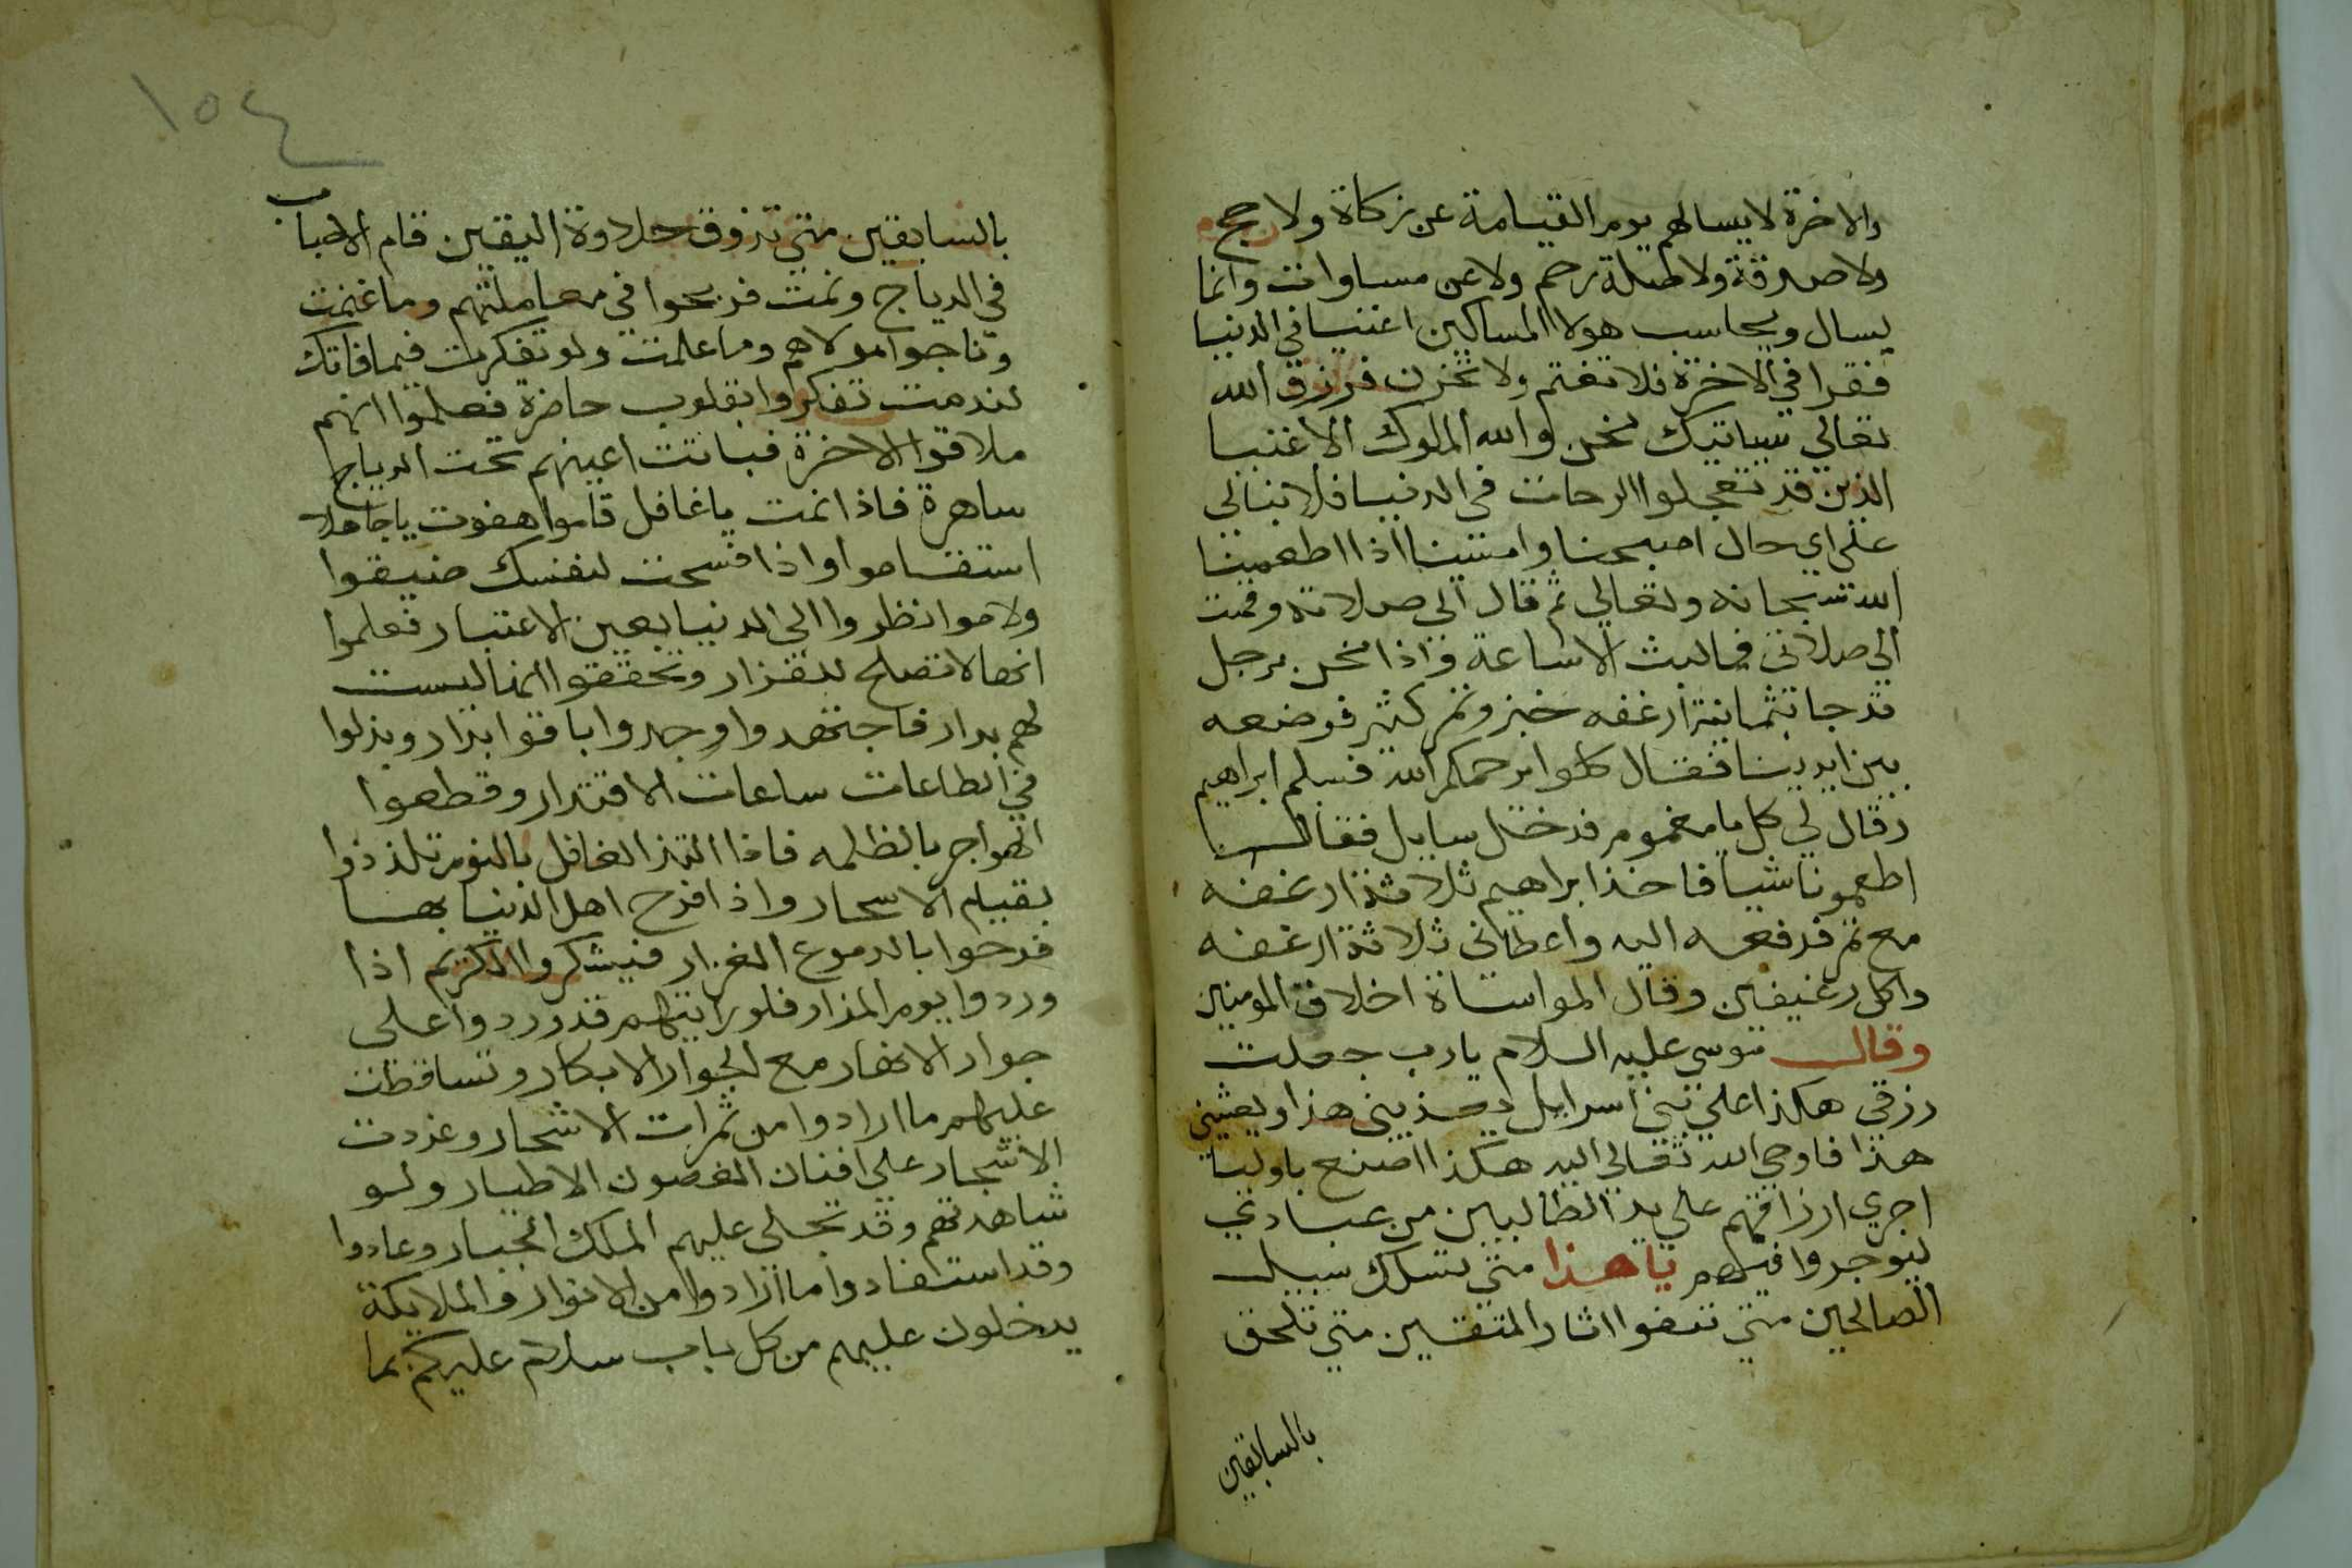 والاخرة لا يسالهم يوم القيامة عن زكاة ولا حج
ولا صدقة ولا صلة رحم ولا عن مساوات وانما
يسال ويحاسب هولا المساكين اغنيا في الدنيا
فقرا في الاخرة فلا تغتم ولا تحزن فرزق الله
تعالي سياتيك نحن والله الملوك الاغنيا
الذين قد تعجلوا الرحات في الدنيا فلا نبالي
علي اي حال اصبحنا وامسينا اذا اطعمنا
الله سبحانه وتعالي ثم قال الي صلاته وقمت
الي صلاتي فما لبث الا ساعة واذا نحن برجل
قد جا بثمانية ارغفه خبز وتمر كثير فوضعه
بين ايدينا فقال كلوا يرحمكم الله فسلم ابراهيم
وقال لي كل يا مغموم فدخل سايل فقال
اطعمونا شيا فاخذ ابراهيم ثلاثة ارغفه
مع تمر فدفعه اليه واعطاني ثلاثة ارغفه
واكل رغيفين وقال المواساة اخلاق المومنين
وقال موسي عليه السلام يارب جعلت
رزقي هكذا علي بني اسرايل يغذيني هذا ويعشيني
هذا فاوحي الله تعالي اليه هكذا اصنع باوليا
اجري ارزاقهم علي يد الطالبين من عبادي
ليوجروا فيهم يا هذا متي تسلك سبيل
الصالحين متي تقفوا اثار المتقين متي تلحق
بالسابقين
١٥٤
بالسابقين متي تذوق حلاوة اليقين قام الاحباب
في الدياج ونمت فربحوا في معاملتهم وما غنمت
وناجوا مولاهم وما علمت ولو تفكرت فيما فاتك
لندمت تفكروا بقلوب حاضرة فعلموا انهم
ملاقوا الاخرة فباتت اعينهم تحت الدياج
ساهرة فاذا نمت يا غافل قاموا هفوت يا جاهلا
استقاموا واذا فسحت لنفسك ضيقوا
ولاموا نظروا الي الدنيا بعين الاعتبار فعلموا
انها لا تصلح للقرار وتحققوا انها ليست
لهم بدار فاجتهدوا وجدوا باقوا بدار وبذلوا
في الطاعات ساعات الاقتدار وقطعوا
الهواجر بالظلمه فاذا التذ الغافل بالنوم تلذذوا
بقيام الاسحار واذا فرح اهل الدنيا بها
فرحوا بالدموع الغزار فيشكروا الكريم اذا
وردوا يوم المزار فلو رايتهم قد وردوا علي
جوار الانهار مع الجوار الابكار وتساقطت
عليهم ما ارادوا من ثمرات الاشجار وغردت
الاشجار علي افنان الغصون الاطيار ولو
شاهدتهم وقد تجلي عليهم الملك الجبار وعادوا
وقد استفادوا ما ارادوا من الانوار والملايكة
يدخلون عليهم من كل باب سلام عليكم بما